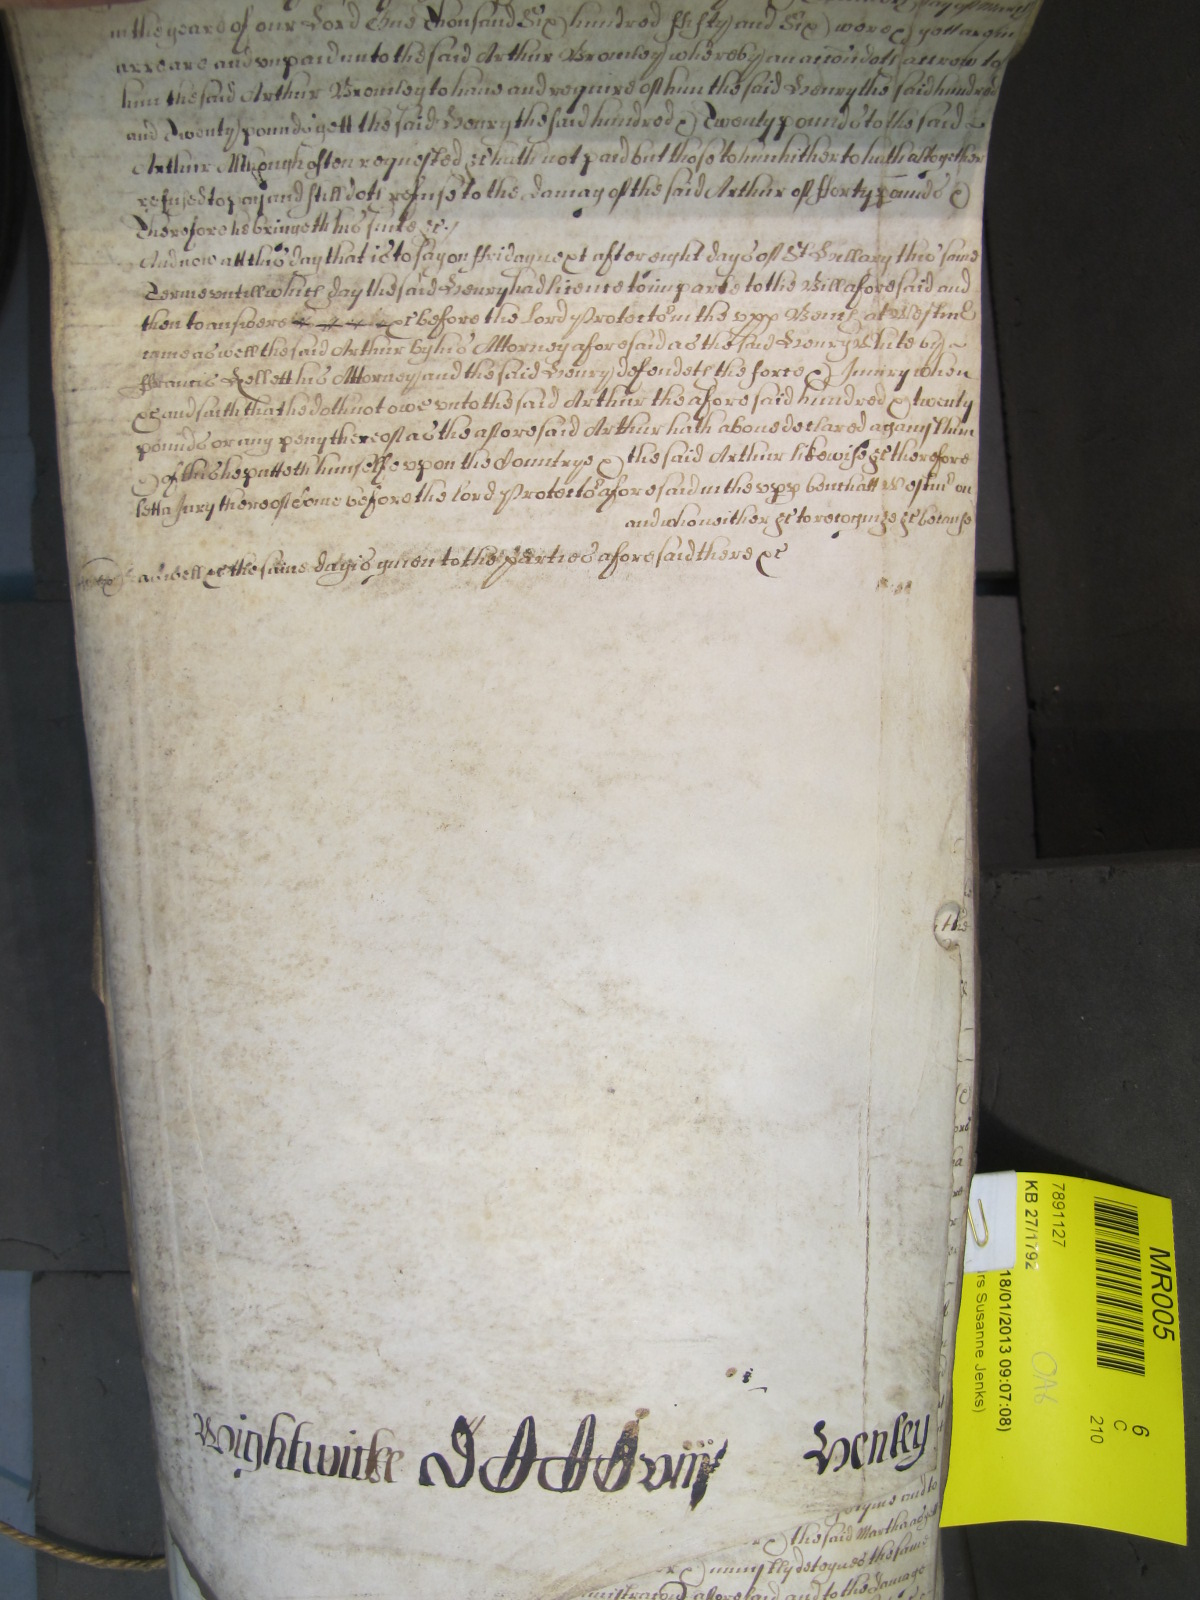 day of March
in the yeare of our Lord One Thousand Six hundred fifty and Six were & yett are in
arreare and unpaid unto the said Arthur Bromley whereby an accon doth accrew to
him the said Arthur Bromley to have and require of him the said Henry the said hundred
and Twenty pounds yett the said Henry the said hundred & Twenty pounds to the said
Arthur Although often requested &c hath not paid but those to him hitherto hath altogether
refused to pay and still doth refuse to the damag of the said Arthur of fforty pounds &
Therefore he bringeth his suite &c
And now att this day that is to say on ffriday next after eight dayes of St Hillary this same
Terme untill which day the said Henry had licence to imparle to the Bill aforesaid and
then to answere &c before the Lord Protector in the upp Bench at Westmr
came as well the said Arthur by his Attorney aforesaid as the said Henry White by
ffrancis Kellett his Attorney and the said Henry defendeth the force & Iniury when
&c and saith that he doth not owe unto the said Arthur the aforesaid hundred & twenty
pounds or any peny thereof as the aforesaid Arthur hath above declared against him
& of this he putteth himselfe upon the Countrye & the said Arthur likewise &c therefore
lett a Jury thereof come before the lord Protector aforesaid in the upp bench att Westmr on
and who neither &c to recognize &c because
aswell &c the same day is given to the parties aforesaid there &c
Wightwicke Henley
the said Martha
the same
aforesaid and to the damage
MR005
6
C
210
7891127
KB 27/1792
18/01/2013 09:07:08)
rs Susanne Jenks)